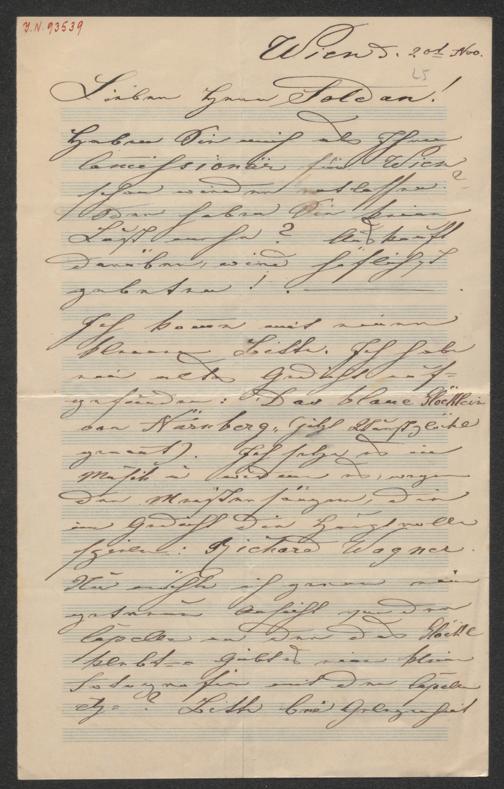 J.N. 93539
Wien d. 20t Nov.
L5
Lieben Herr Toldan!
Haben Sie mich als Ihren
Comissionär für Wien
schon wieder entlassen?
Oder haben Sie keine
Lust mehr? Auskunft
darüber wird höflichst
gebeten!
Ich komm mit einer
kleinen Bitte. Ich habe
ein altes Gedicht auf-
gefunden: "Das blaue Glöcklein
von Nürnberg" (jetzt Wurstglöckl
genannt). Ich setze es in
Musik u widme es, wegen
der Meistersänger, die
im Gedicht die Hauptrolle
spielen: Richard Wagner.
Nun möchte ich gerne eine
getreue Ansicht von der
Capelle an der das Glöckl
klebt. Gibt es eine kleine
Fotografie mit der Capelle
etz? Bitte bei Gelegenheit